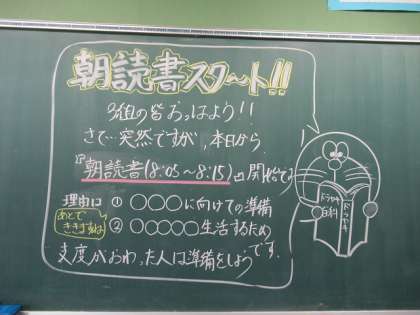 朝読書スタート!!
3組の皆おっはよう!!
さて…突然ですが、本日から、
『朝読書(8:05〜8:15)』開始です
理由は ① ○○○に向けての準備
あとでききますね ② ○○○○○生活するため
支度がおわった人は準備をしようです。
ドラヤキ百科
ドラヤキ